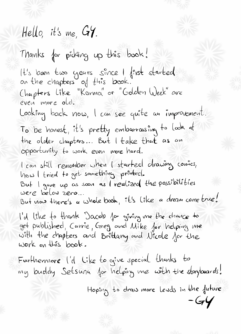 Hello, it's me, GY.
Thanks for picking up this book!
It's been two years since I first started
on the chapters of this book.
Chapters like "Karma" or "Golden Week" are
even more old.
Looking back now, I can see quite an improvement.
To be honest, it's pretty embarrassing to look at
the older chapters... But I take that as an
opportunity to work even more hard.
I can still remember when I started drawing comics,
how I tried to get something printed.
But I gave up as soon as I realized the possibilities
were below zero...
But now there's a whole book, it's like a dream come true!
I'd like to thank Jacob for giving me the chance to
get published, Carrie, Greg and Mike for helping me
with the chapters and Brittany and Nicole for the
work on this book.
Furthermore I'd like to give special thanks to
my buddy Setsuna for helping me with the storyboards!
Hoping to draw more lewds in the future
-GY